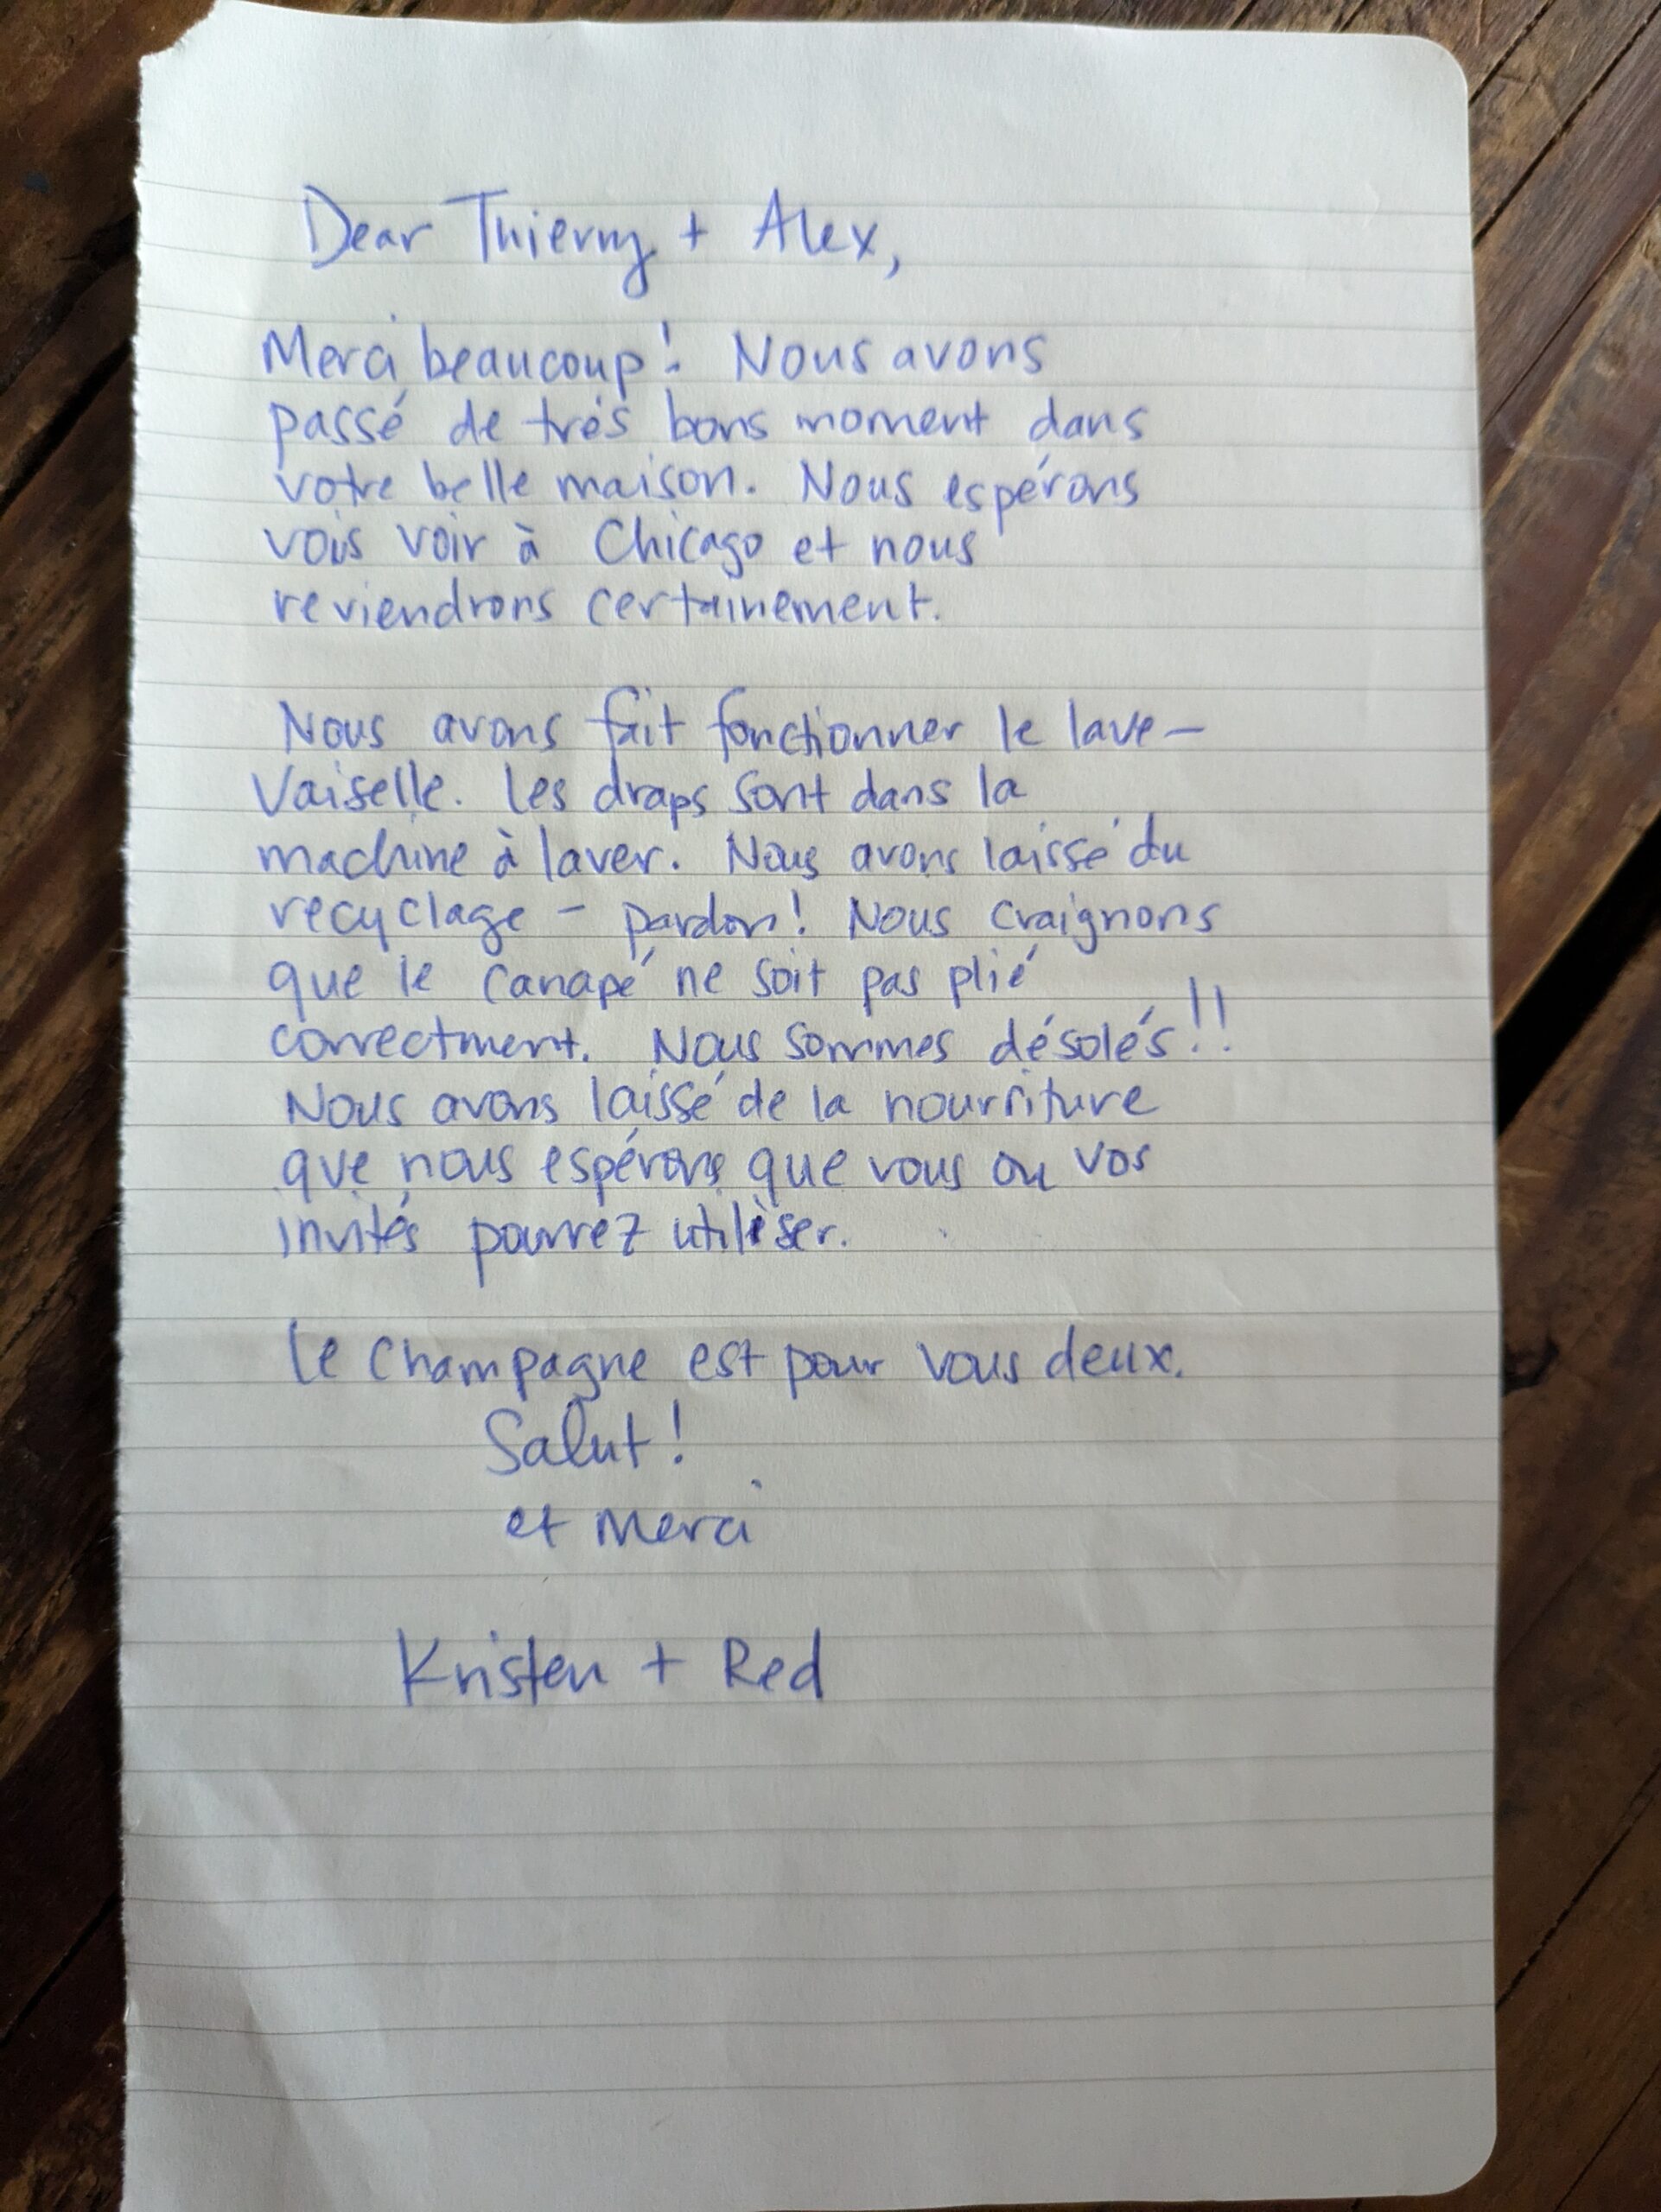 Dear Thierry + Alex,
Merci beaucoup! Nous avons
passé de trés bons moment dans
votre belle maison. Nous espérons
vois voir à Chicago et nous
reviendrons certainement.
Nous avons fait fonctionner le lave-
Vaiselle. Les draps sont dans la
machine à laver. Nous avons laissé du
recyclage - pardon! Nous craignons
que le canapé ne soit pas plié
correctment. Nous sommes désolés!!
Nous avons laissé de la nourriture
que nous espérons que vous ou vos
invités pourrez utiliser.
Le Champagne est pour vous deux.
Salut!
et merci
Kristen + Red